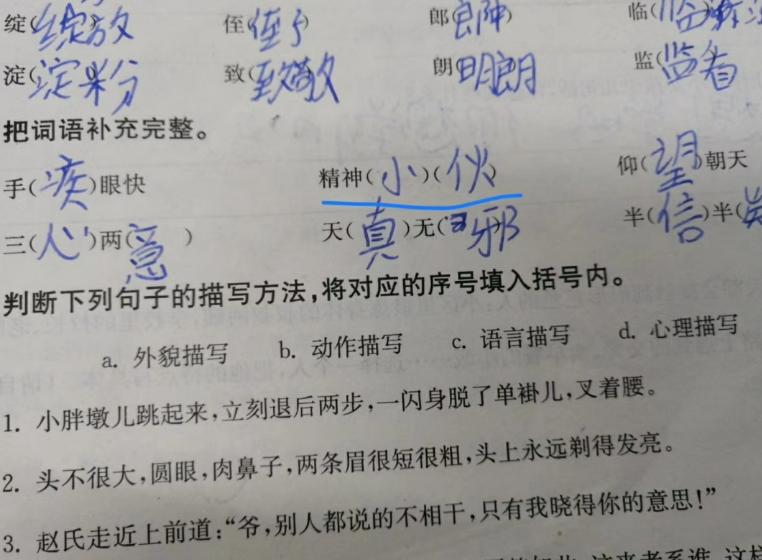 绽(绽放 侄(侄子) 郎(郎 临(临
淀(淀粉 致(致敬 朗(明朗 监(监看
把词语补充完整。
手(疾)眼快 精神(小)(伙) 仰(望)朝天
三(心)两(意) 天(真)无(邪 半(信)半(
判断下列句子的描写方法,将对应的序号填入括号内。
a. 外貌描写 b. 动作描写 c. 语言描写 d. 心理描写
1. 小胖墩儿跳起来,立刻退后两步,一闪身脱了单褂儿,叉着腰。
2. 头不很大,圆眼,肉鼻子,两条眉很短很粗,头上永远剃得发亮。
3. 赵氏走近上前道:“爷,别人都说的不相干,只有我晓得你的意思!”